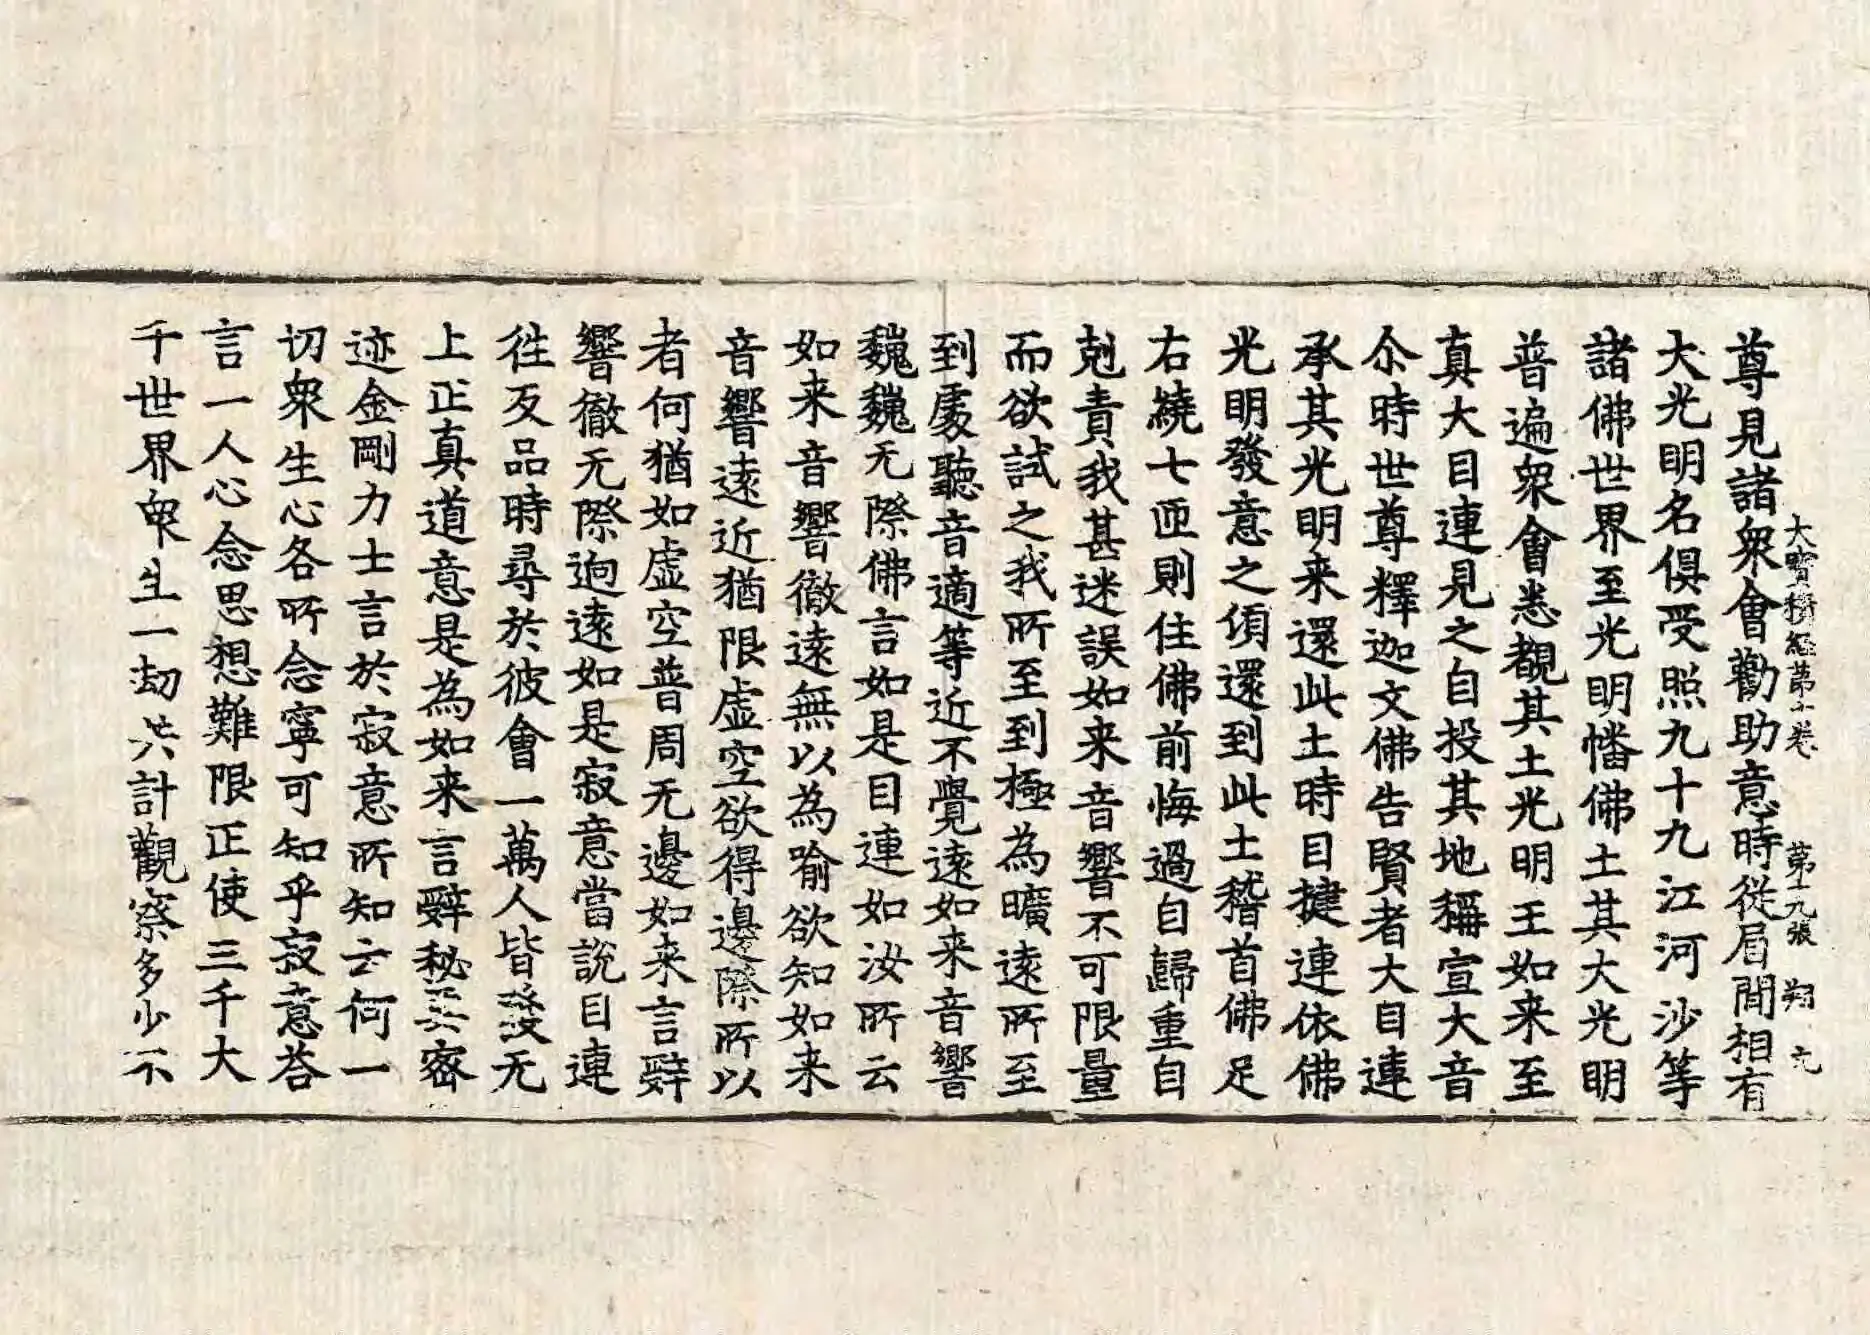 大寶積經第十卷 第十九張 翔 六
尊見諸衆會勸助意時從眉間相有
大光明名俱受照九十九江河沙等
諸佛世界至光明幡佛土其大光明
普遍衆會悉覩其土光明王如来至
真大目連見之自投其地稱宣大音
尒時世尊釋迦文佛告賢者大目連
承其光明来還此土時目揵連依佛
光明發意之頃還到此土稽首佛足
右繞七匝則住佛前悔過自歸重自
剋責我甚迷誤如来音響不可限量
而欲試之我所至到極為曠遠所至
到處聽音適等近不覺遠如来音響
巍巍无際佛言如是目連如汝所云
如来音響徹遠無以為喻欲知如来
音響遠近猶限虛空欲得邊際所以
者何猶如虛空普周无邊如来言辭
響徹无際逈遠如是寂意當說目連
徃反品時尋於彼會一萬人皆發无
上正真道意是為如来言辭秘要密
迹金剛力士言於寂意所知云何一
切衆生心各所念寧可知乎寂意荅
言一人心念思想難限正使三千大
千世界衆生一劫共計觀察多少不